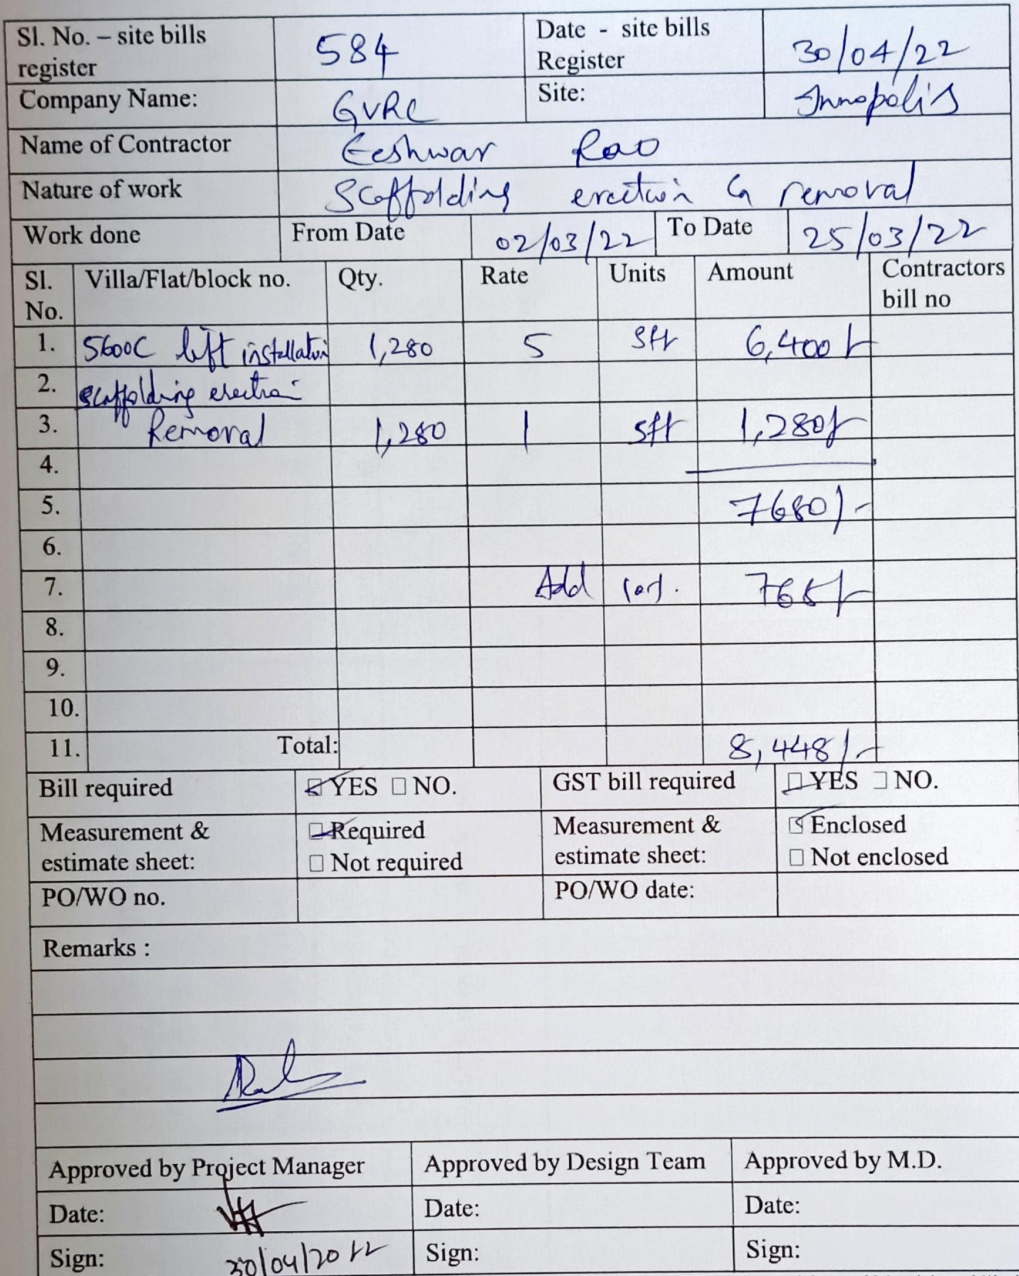 Sl. No. – site bills register 584 Date - site bills Register 30/04/22
Company Name: GVRC Site: Innopolis
Name of Contractor Eeshwar Rao
Nature of work Scaffolding erection & removal
Work done From Date 02/03/22 To Date 25/03/22
Sl. No. Villa/Flat/block no. Qty. Rate Units Amount Contractors bill no
1. 5600C lift installation 1,280 5 Sft 6,400/-
2. scaffolding erection
3. Removal 1,280 1 sft 1,280/-
4.
5. 7680/-
6.
7. Add 10%. 768/-
8.
9.
10.
11. Total: 8,448/-
Bill required YES NO. GST bill required YES NO.
Measurement & estimate sheet: Required Not required Measurement & estimate sheet: Enclosed Not enclosed
PO/WO no. PO/WO date:
Remarks :
Approved by Project Manager Approved by Design Team Approved by M.D.
Date: Date: Date:
Sign: 30/04/2022 Sign: Sign: